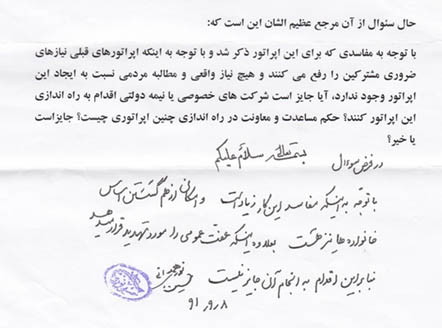 حال سئوال از آن مرجع عظیم الشان این است که:
با توجه به مفاسدی که برای این اپراتور ذکر شد و با توجه به اینکه اپراتورهای قبلی نیازهای
ضروری مشترکین را رفع می کنند و هیچ نیاز واقعی و مطالبه مردمی نسبت به ایجاد این
اپراتور وجود ندارد، آیا جایز است شرکت های خصوصی یا نیمه دولتی اقدام به راه اندازی
این اپراتور کنند؟ حکم مساعدت و معاونت در راه اندازی چنین اپراتوری چیست؟ جایزاست
یا خیر؟
بسمه تعالی سلام علیکم
در فرض سوال
با توجه به اینکه مفاسد این کار زیاد است و امکان از هم گسستن اساس
خانواده ها نیز هست بعلاوه اینکه عفت عمومی را مورد تهدید قرار میدهد
بنابراین اقدام به انجام آن جایز نیست
حسین نوری همدانی
۹۱